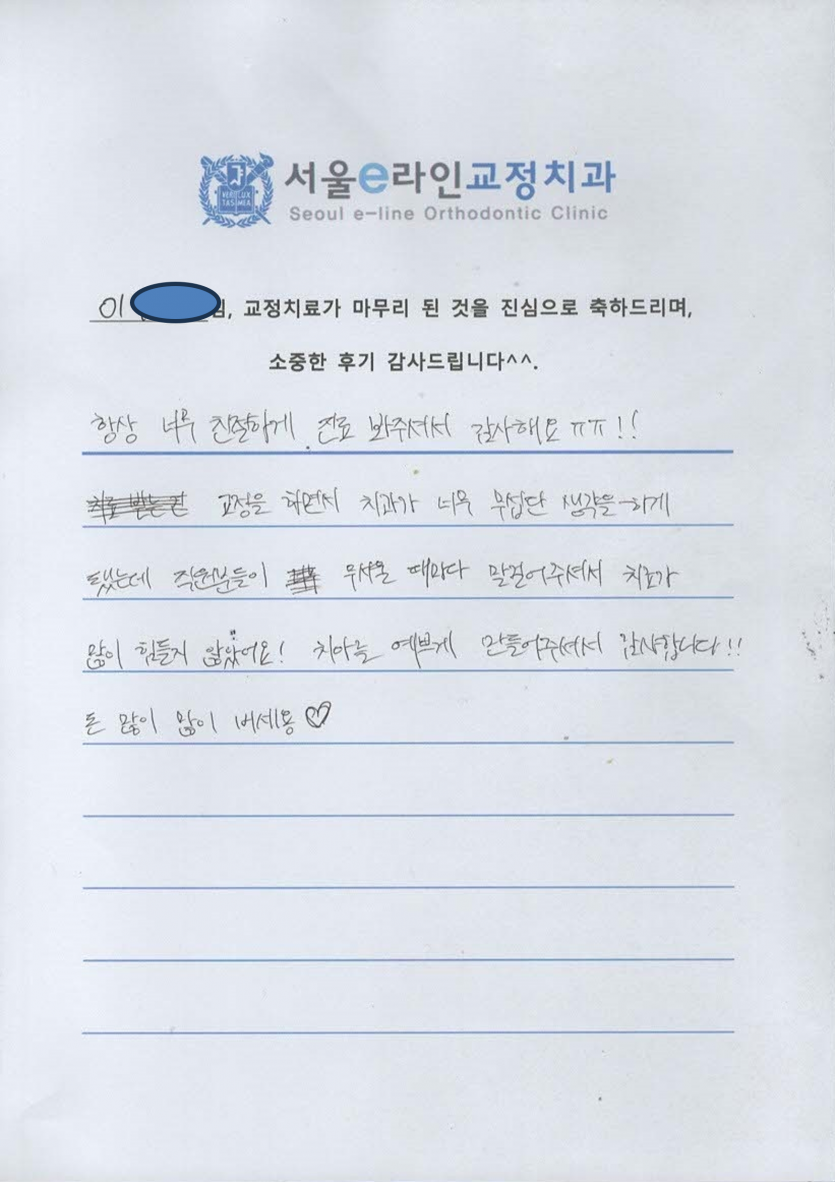 서울e라인교정치과
Seoul e-line Orthodontic Clinic
VERI LUX TAS MEA
이 님, 교정치료가 마무리 된 것을 진심으로 축하드리며,
소중한 후기 감사드립니다^^.
항상 너무 친절하게 진료 봐주셔서 감사해요 ㅠㅠ!!
교정을 하면서 치과가 너무 무섭단 생각을 하게
됐는데 직원분들이 무서울 때마다 말걸어주셔서 치료가
많이 힘들지 않았어요! 치아를 예쁘게 만들어주셔서 감사합니다!!
돈 많이 많이 버세용♡